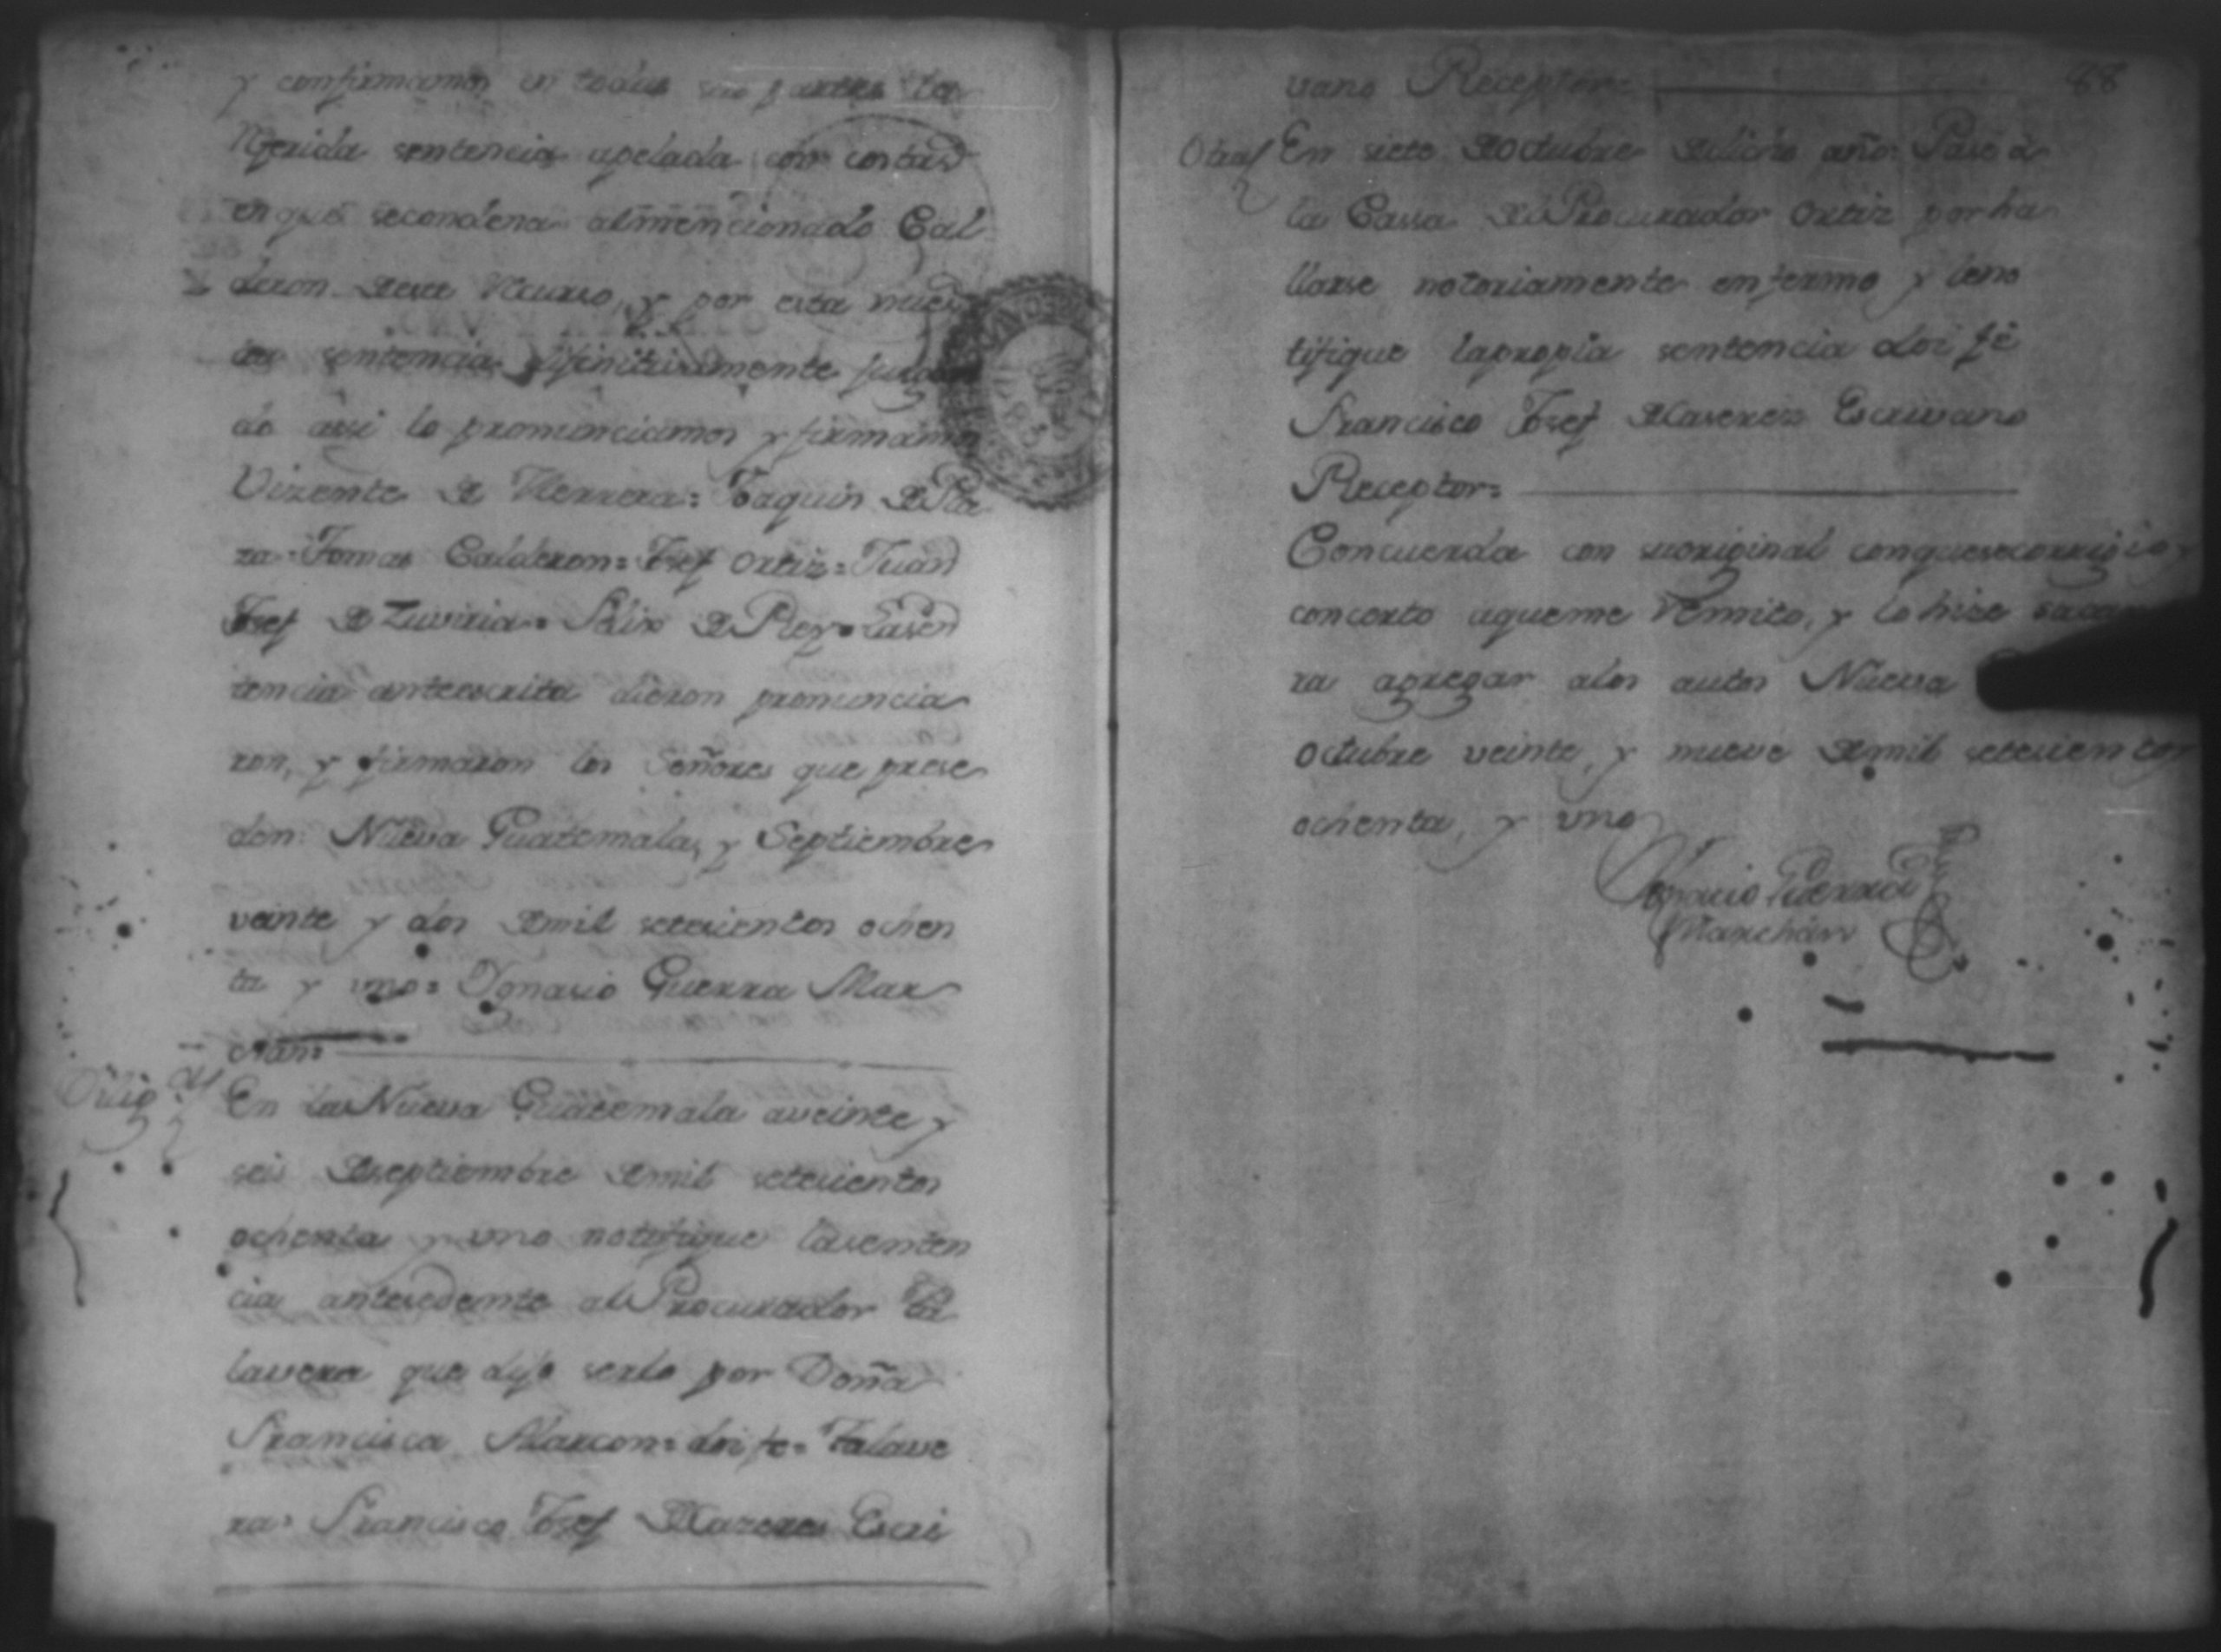 y confirmamos en todas sus partes la
referida sentencia apelada con costas
en que secondena almencionado Cal
deron deeste recurso, y por esta nues
tra sentencia difinitivamente juzgan
do assi lo pronunciamos y firmamos
Vizente de Herrera = Joaquin de Pla
za = Tomas Calderon = Josef Ortiz = Juan
Josef de Zuviria = Felix de Rey = Lasen
tencia anteescrita dieron pronuncia
ron, y firmaron los Señores que prese
den: Nueva Guatemala, y Septiembre
veinte y dos demil setecientos ochen
ta y uno = Ygnasio Guerra Mar
chan =
Dilig.ª
En la Nueva Guatemala aveinte y
seis deseptiembre demil setecientos
ochenta y uno notifique lasenten
cia antesedente al Procurador Ta
lavera que dijo serlo por Doña
Francisca Alarcon = doi fe = Talave
ra = Francisco Josef de Cazeres Escri
88
vano Receptor =
Otra
En siete deoctubre dedicho año: Pase à
la Cassa del Procurador Ortiz por ha
llarse notoriamente enfermo y leno
tifique lapropia sentencia doi fé
Francisco Josef de Caseres Escrivano
Receptor =
Concuerda con suoriginal conquesecorrigio y
concerto aqueme remito, y lo hize sacar
ra agregar alos autos Nueva
octubre veinte, y nueve demil setecientos
ochenta, y uno
Ygnacio Guerra
Marchán